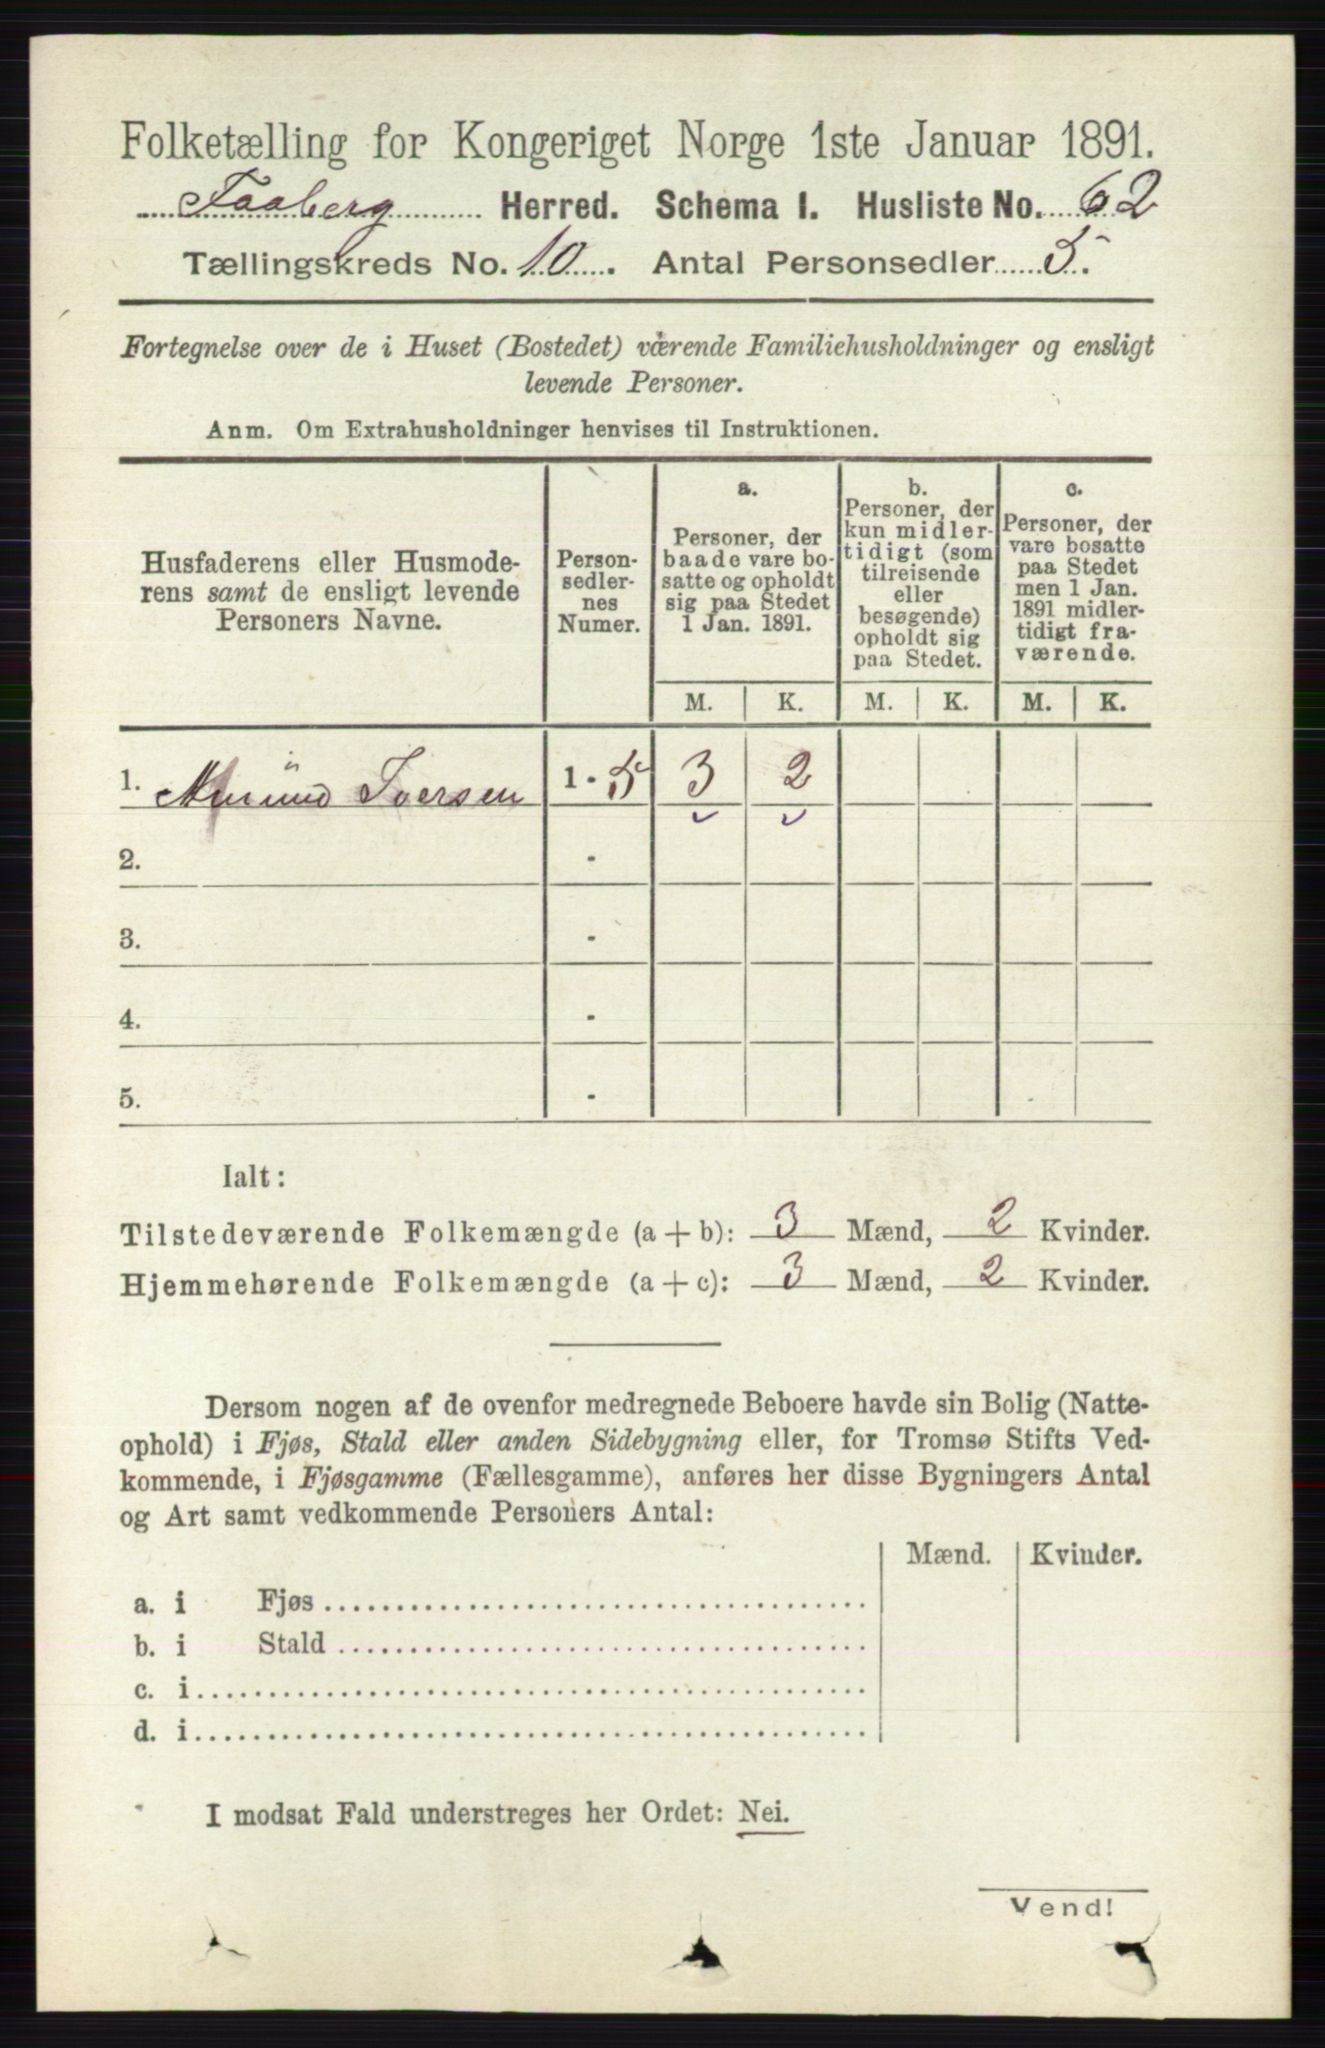 Folketælling for Kongeriget Norge 1ste Januar 1891.
Faaberg Herred. Schema I. Husliste No. 62
Tællingskreds No. 10. Antal Personsedler 5.
Fortegnelse over de i Huset (Bostedet) værende Familiehusholdninger og ensligt
levende Personer.
Anm. Om Extrahusholdninger henvises til Instruktionen.
Husfaderens eller Husmode-
rens samt de ensligt levende
Personers Navne.
Person-
sedler-
nes
Numer.
a.
Personer, der
baade vare bo-
satte og opholdt
sig paa Stedet
1 Jan. 1891.
b.
Personer, der
kun midler-
tidigt (som
tilreisende
eller
besøgende)
opholdt sig
paa Stedet.
c.
Personer, der
vare bosatte
paa Stedet
men 1 Jan.
1891 midler-
tidigt fra-
værende.
M. K. M. K. M. K.
1. Amund Iversen 1 - 5 3 2
2. -
3. -
4. -
5. -
Ialt:
Tilstedeværende Folkemængde (a + b): 3 Mænd, 2 Kvinder.
Hjemmehørende Folkemængde (a + c): 3 Mænd, 2 Kvinder.
Dersom nogen af de ovenfor medregnede Beboere havde sin Bolig (Natte-
ophold) i Fjøs, Stald eller anden Sidebygning eller, for Tromsø Stifts Ved-
kommende, i Fjøsgamme (Fællesgamme), anføres her disse Bygningers Antal
og Art samt vedkommende Personers Antal:
Mænd. Kvinder.
a. i Fjøs
b. i Stald
c. i
d. i
I modsat Fald understreges her Ordet: Nei.
Vend!